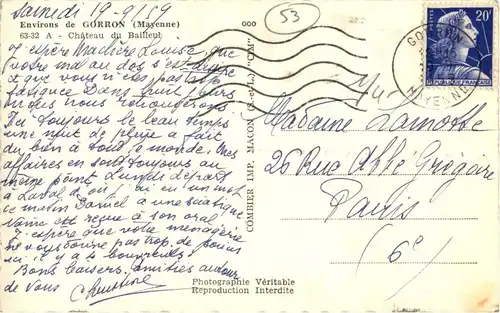 Samedi 19-9/59
Environs de GORRON (Mayenne)
63-32 A - Château du Bailleul
ooo
53
J'espère Madame Louise, que
votre mal au dos s'est
et que vous n'êtes pas trop
fatiguée Dans huit jours
nous nous retrouverons
Ici toujours le beau temps
une nuit de pluie a fait
du bien à tout le monde. Mes
affaires en sont toujours au
même point Lundi départ
à Laval d'où j'ai eu un mot
ce matin Daniel a une sciatique
est reçue à son oral
J'espère que votre ménagerie
ne vous donne pas trop de
ici il y a 4
Bons baisers, amitiés autour
de vous Christine
COMBIER IMP. MACON (S.-et-L.) "CIM"
Photographie Véritable
Reproduction Interdite
GORRON
MAYENNE
20F
REPUBLIQUE FRANÇAISE
Madame Lamotte
26 Rue Abbé Grégoire
Paris
(6e)